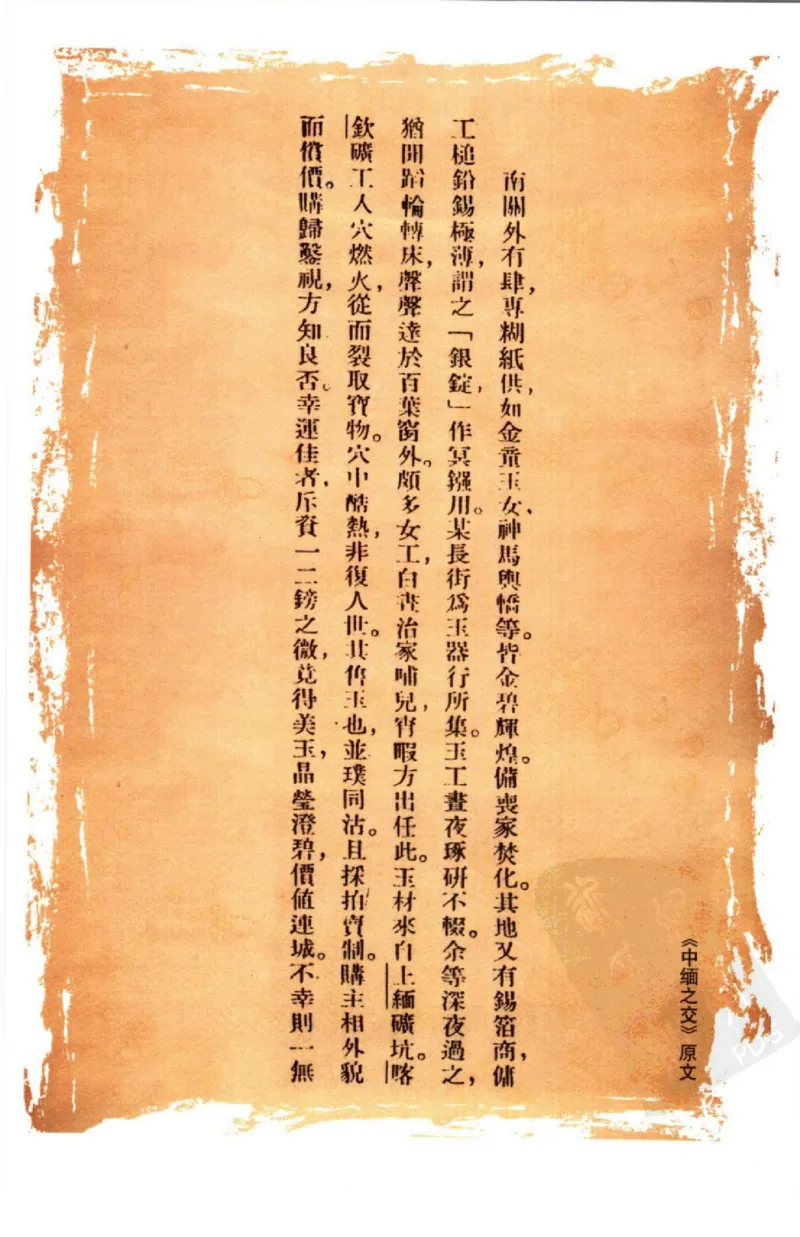 《中缅之交》原文
南關外有肆，專糊紙供，如金童玉女、神馬輿轎等。皆金碧輝煌。備喪家焚化。其地又有錫箔商，傭
工槌鉛錫極薄，謂之「銀錠，」作冥鏹用。某長街爲玉器行所集。玉工晝夜琢研不輟。余等深夜過之，
猶聞蹈輪轉床，聲聲達於百葉窗外。頗多女工，白晝治家哺兒，宵暇方出任此。玉材來自上緬礦坑。喀
欽礦工人穴燃火，從而裂取寶物。穴中酷熱，非復人世。其售玉也，並璞同沽。且採拍賣制。購主相外貌
而償價。購歸鑿視，方知良否。幸運佳者，斥資一二鎊之微，竟得美玉，晶瑩澄碧，價値連城。不幸則一無